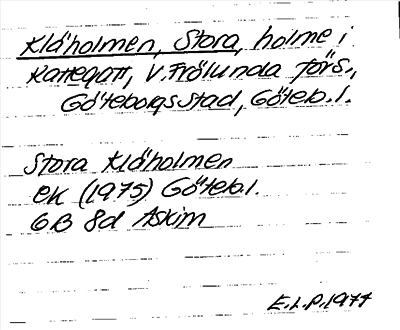 Klåholmen, Stora, holme i
Kattegatt, V. Frölunda förs.,
Göteborgs stad, Göteb. l.
Stora Klåholmen
ek (1975) Göteb. l.
6B 8d Askim
E.L.P. 1977